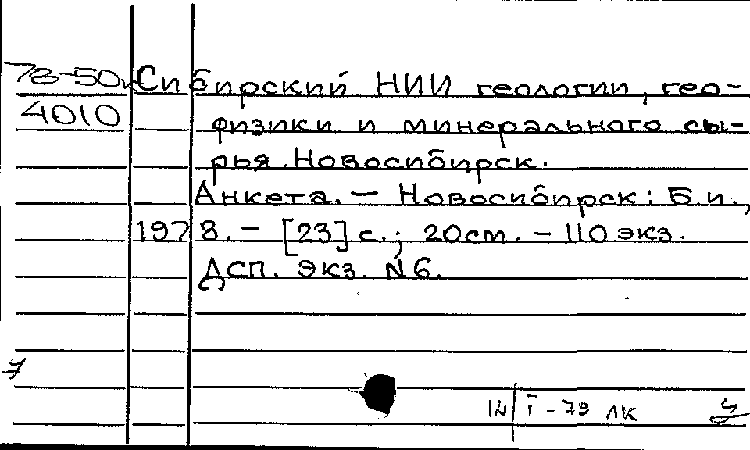 78-50 Сибирский НИИ геологии, гео-
4010 физики и минерального сы-
рья. Новосибирск.
Анкета. – Новосибирск: Б.и.,
1978. – [23] с.; 20см. – 110 экз.
ДСП. Экз. N6.
7
I – 79 ЛК